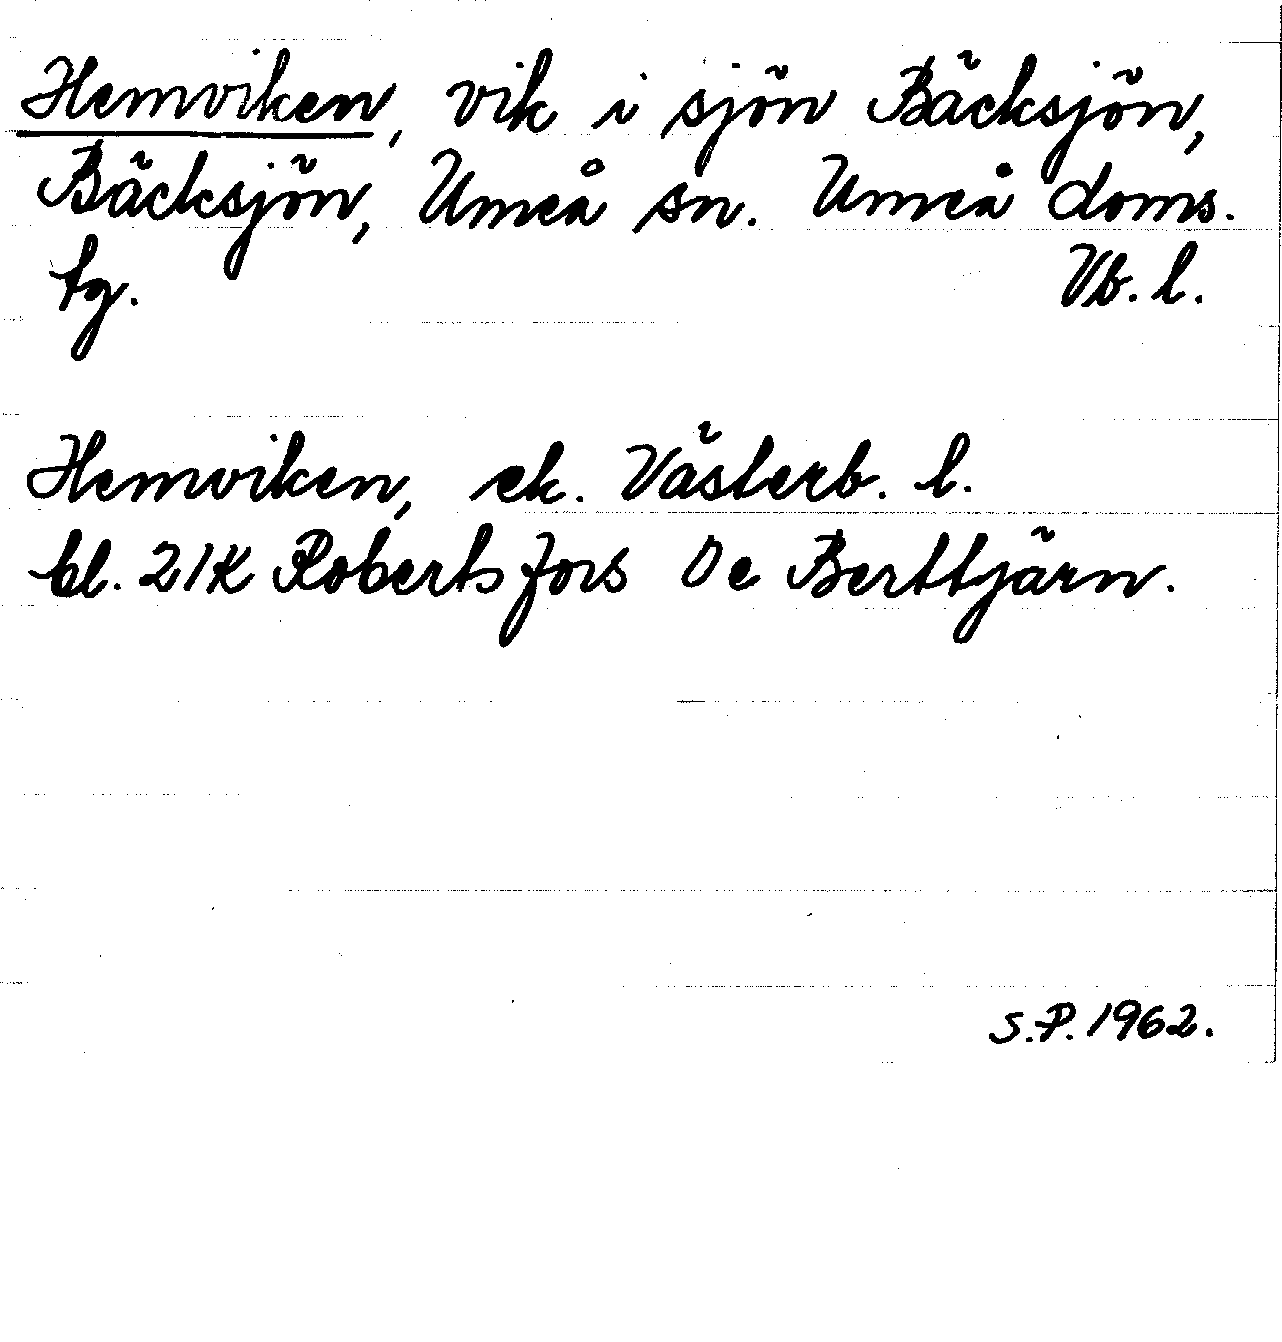 Hemviken, vik i sjön Bäcksjön,
Bäcksjön, Umeå sn. Umeå doms.
tg. Vb. l.
Hemviken, ek. Västerb. l.
bl. 21K Robertsfors Oe Berttjärn.
S.P. 1962.